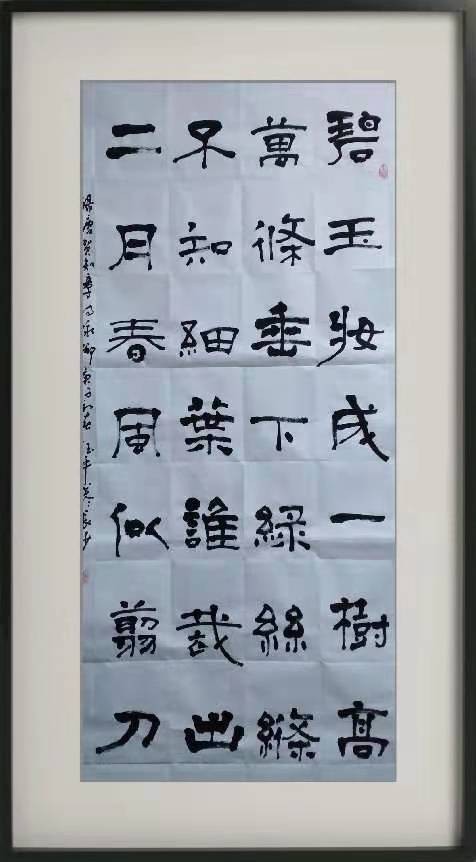 碧玉妝成一樹高
萬條垂下綠絲縧
不知細葉誰裁出
二月春風似翦刀
唐賀知章 庚子